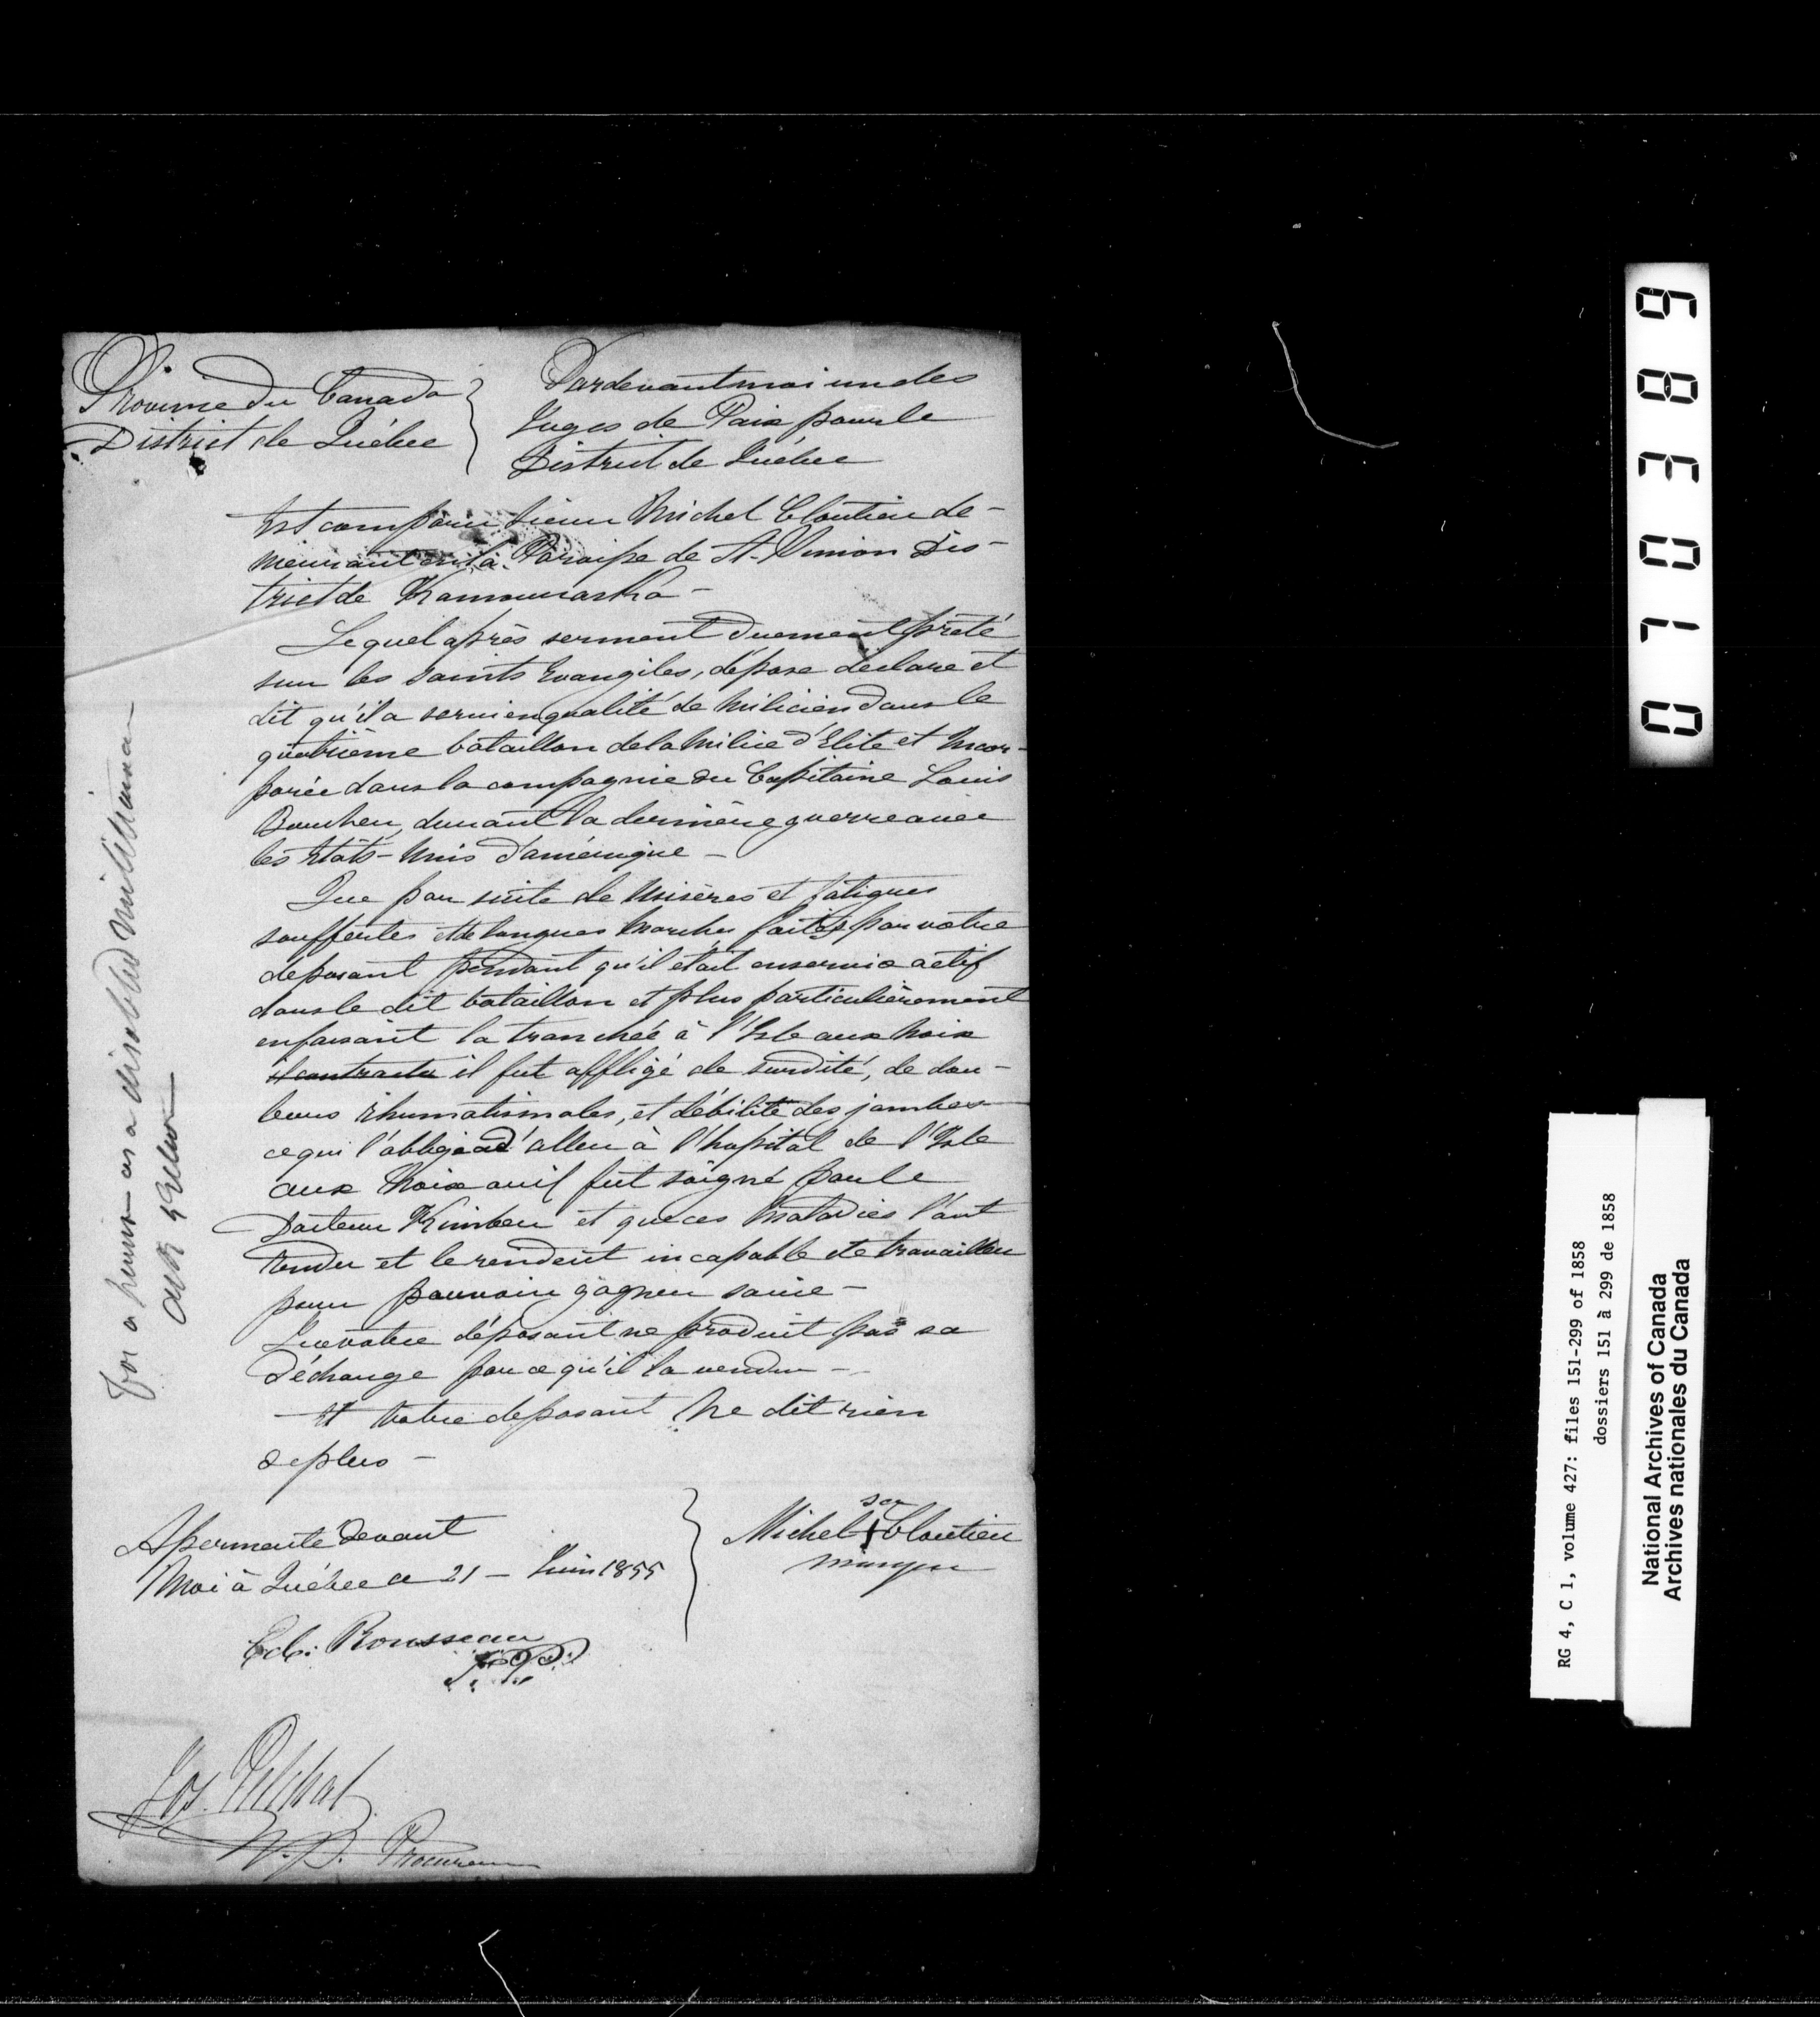 Province du Canada
District de Québec
Pardevant moi un des
Juges de Paix pour le
District de Québec
Est comparu Sieur Michel Cloutier de-
meurant en la Paroisse de St. Simon Dis-
trict de Kamouraska -
Lequel après serment duement prêté
sur les Saints Evangiles, dépose déclare et
dit qu'il a servi en qualité de Milicien dans le
quatrième bataillon de la Milice d'Elite et Incor-
porée dans la compagnie du Capitaine Louis
Boucher, durant la dernière guerre avec
les Etats-Unis d'amérique -
Que par suite de Misères et fatigues
souffertes et de longues Marches faites par votre
déposant pendant qu'il était en service actif
dans le dit bataillon et plus particulièrement
en faisant la tranchée à l'Isle aux Noix
il contracta il fut affligé de surdité, de dou-
leurs rhumatismales, et débilité des jambes
ce qui l'obligea d'aller à l'hopital de l'Isle
aux Noix ou il fut soigné par le
Docteur Kimber et que ces Maladies l'ont
rendu et le rendent incapable de travailler
pour pouvoir gagner sa vie -
Que votre déposant ne produit pas sa
Décharge parce qu'il l'a vendu -
Et Votre deposant Ne dit rien
de plus -
Assermenté devant
Moi à Québec ce 21 - Juin 1855
Michel sa + Cloutier
marque
Ed. Rousseau
J.P.
Jos. 
N.P. Procureur
For a pension as a disabled Militiaman
983010
RG 4, C 1, volume 427: files 151-299 of 1858
dossiers 151 à 299 de 1858
National Archives of Canada
Archives nationales du Canada